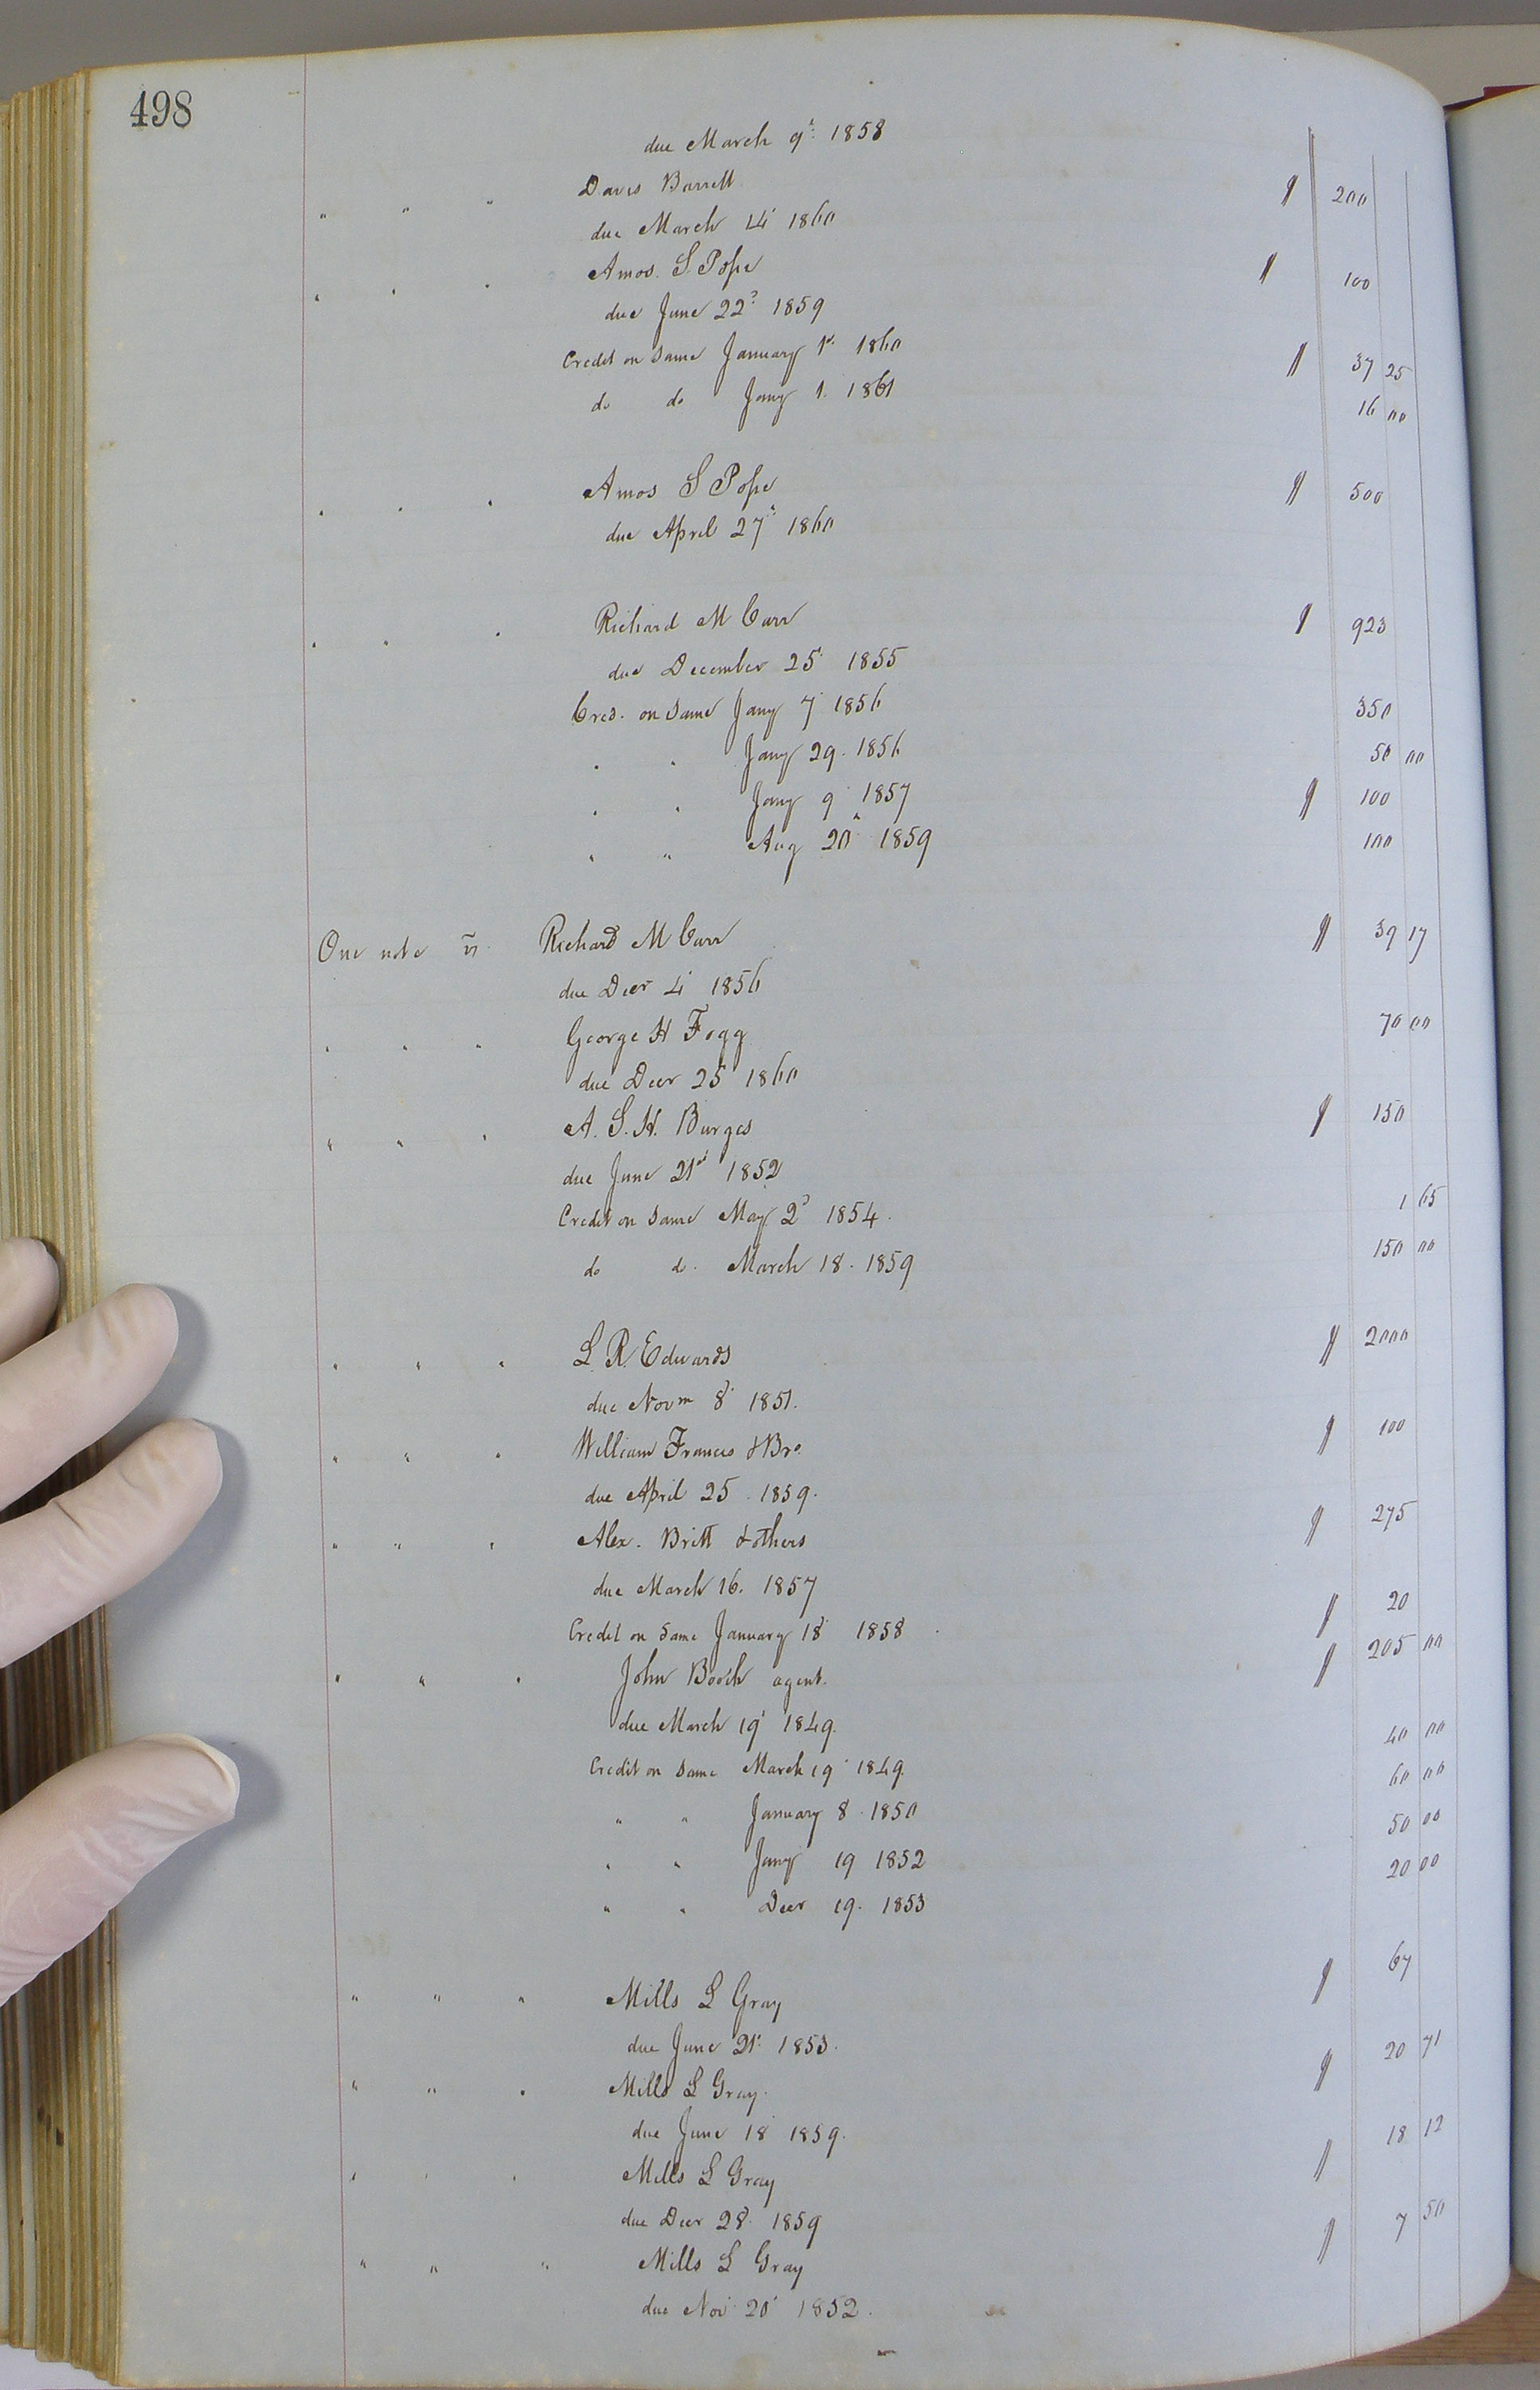 498
due March 9th 1858
" " " Davis Barrett $ 200
due March 14 1860
" " " Amos. S. Pope $ 100
due June 22d 1859
Credit on same January 1st 1860 $ 37 25
do do Jany 1. 1861 16 00
" " " Amos S Pope $ 500
due April 27th 1860
" " " Richard M Carr $ 923
due December 25th 1855
Cred. on same Jany 7 1856 350
" " Jany 29. 1856 50 00
" " Jany 9 1857 $ 100
" " Aug 20th 1859 100
One note vs Richard M Carr $ 39 17
due Decr 4 1856
" " " George H Fogg 70 00
due Decr 25 1860
" " " A. S. H. Burges $ 150
due June 21st 1852
Credit on same May 2d 1854. 1 65
do do. March 18. 1859 150 00
" " " L. R. Edwards $ 2000
due Novm 8th 1851.
" " " William Francis & Bro. $ 100
due April 25. 1859.
" " " Alex. Britt & others $ 275
due March 16. 1857
Credit on same January 18 1858 $ 20
" " " John Booth agent. $ 205 00
due March 19 1849.
Credit on same March 19 1849. 40 00
" " January 8. 1850 60 00
" " Jany 19 1852 50 00
" " Decr 19. 1853 20 00
" " " Mills L Gray $ 67
due June 21st 1853.
" " " Mills L Gray. $ 20 71
due June 18 1859.
" " " Mills L Gray $ 18 12
due Decr 28. 1859
" " " Mills L Gray $ 7 50
due Nov 20 1852.